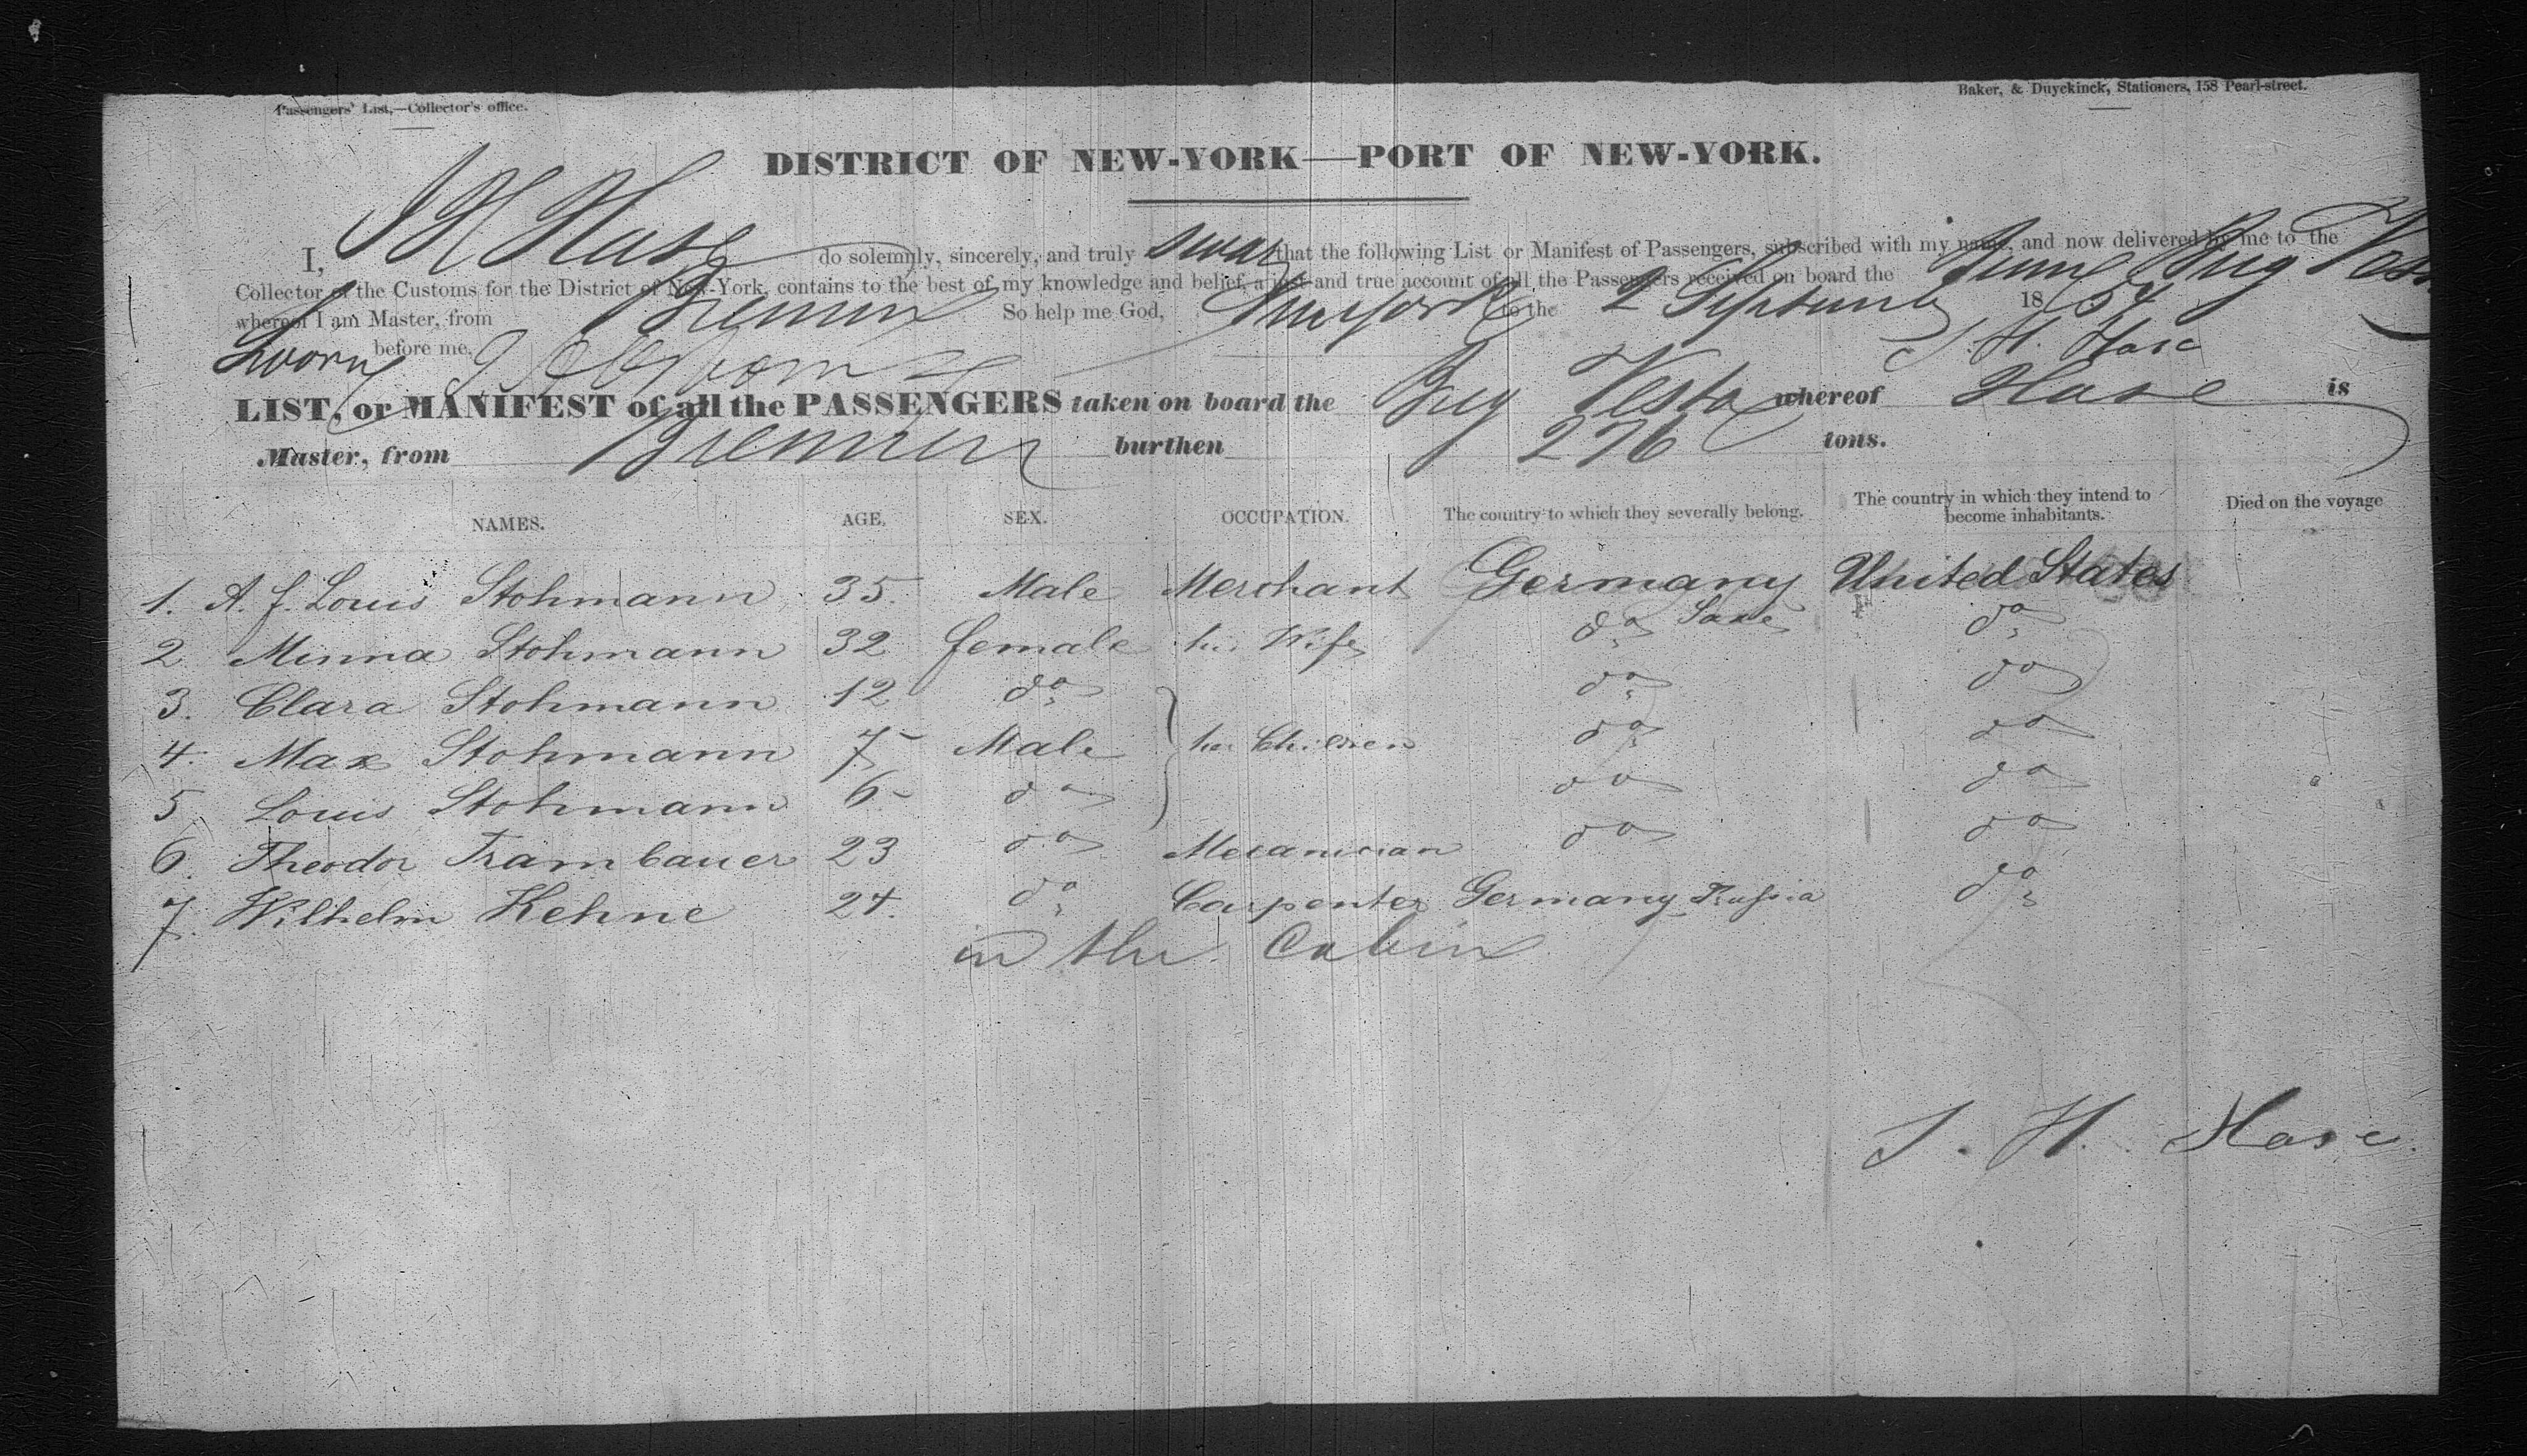 Passengers' List,—Collector's office.
Baker, & Duyckinck, Stationers, 158 Pearl-street.
DISTRICT OF NEW-YORK—PORT OF NEW-YORK.
I, J H Hase do solemnly, sincerely, and truly swear that the following List or Manifest of Passengers, subscribed with my name, and now delivered by me to the
Collector of the Customs for the District of New-York, contains to the best of my knowledge and belief, a just and true account of all the Passengers received on board the Brig Vesta
whereof I am Master, from Bremen So help me God, to the 2 September 1854
Sworn before me, J. H. Hase
LIST, or MANIFEST of all the PASSENGERS taken on board the Brig Vesta whereof Hase is
Master, from Bremen burthen 276 tons.
NAMES. AGE. SEX. OCCUPATION. The country to which they severally belong. The country in which they intend to become inhabitants. Died on the voyage
1. A. f. Louis Stohmann 35 Male Merchant Germany United States
2 Minna Stohmann 32 female his Wife do do
3. Clara Stohmann 12 do do do
4. Max Stohmann 7 Male his Children do do
5. Louis Stohmann 6 do do do
6. Theodor Trambauer 23 do Mecanician do do
7. Wilhelm Kehne 24. do Carpenter Germany Prussia do
in the Cabin
J. H. Hase